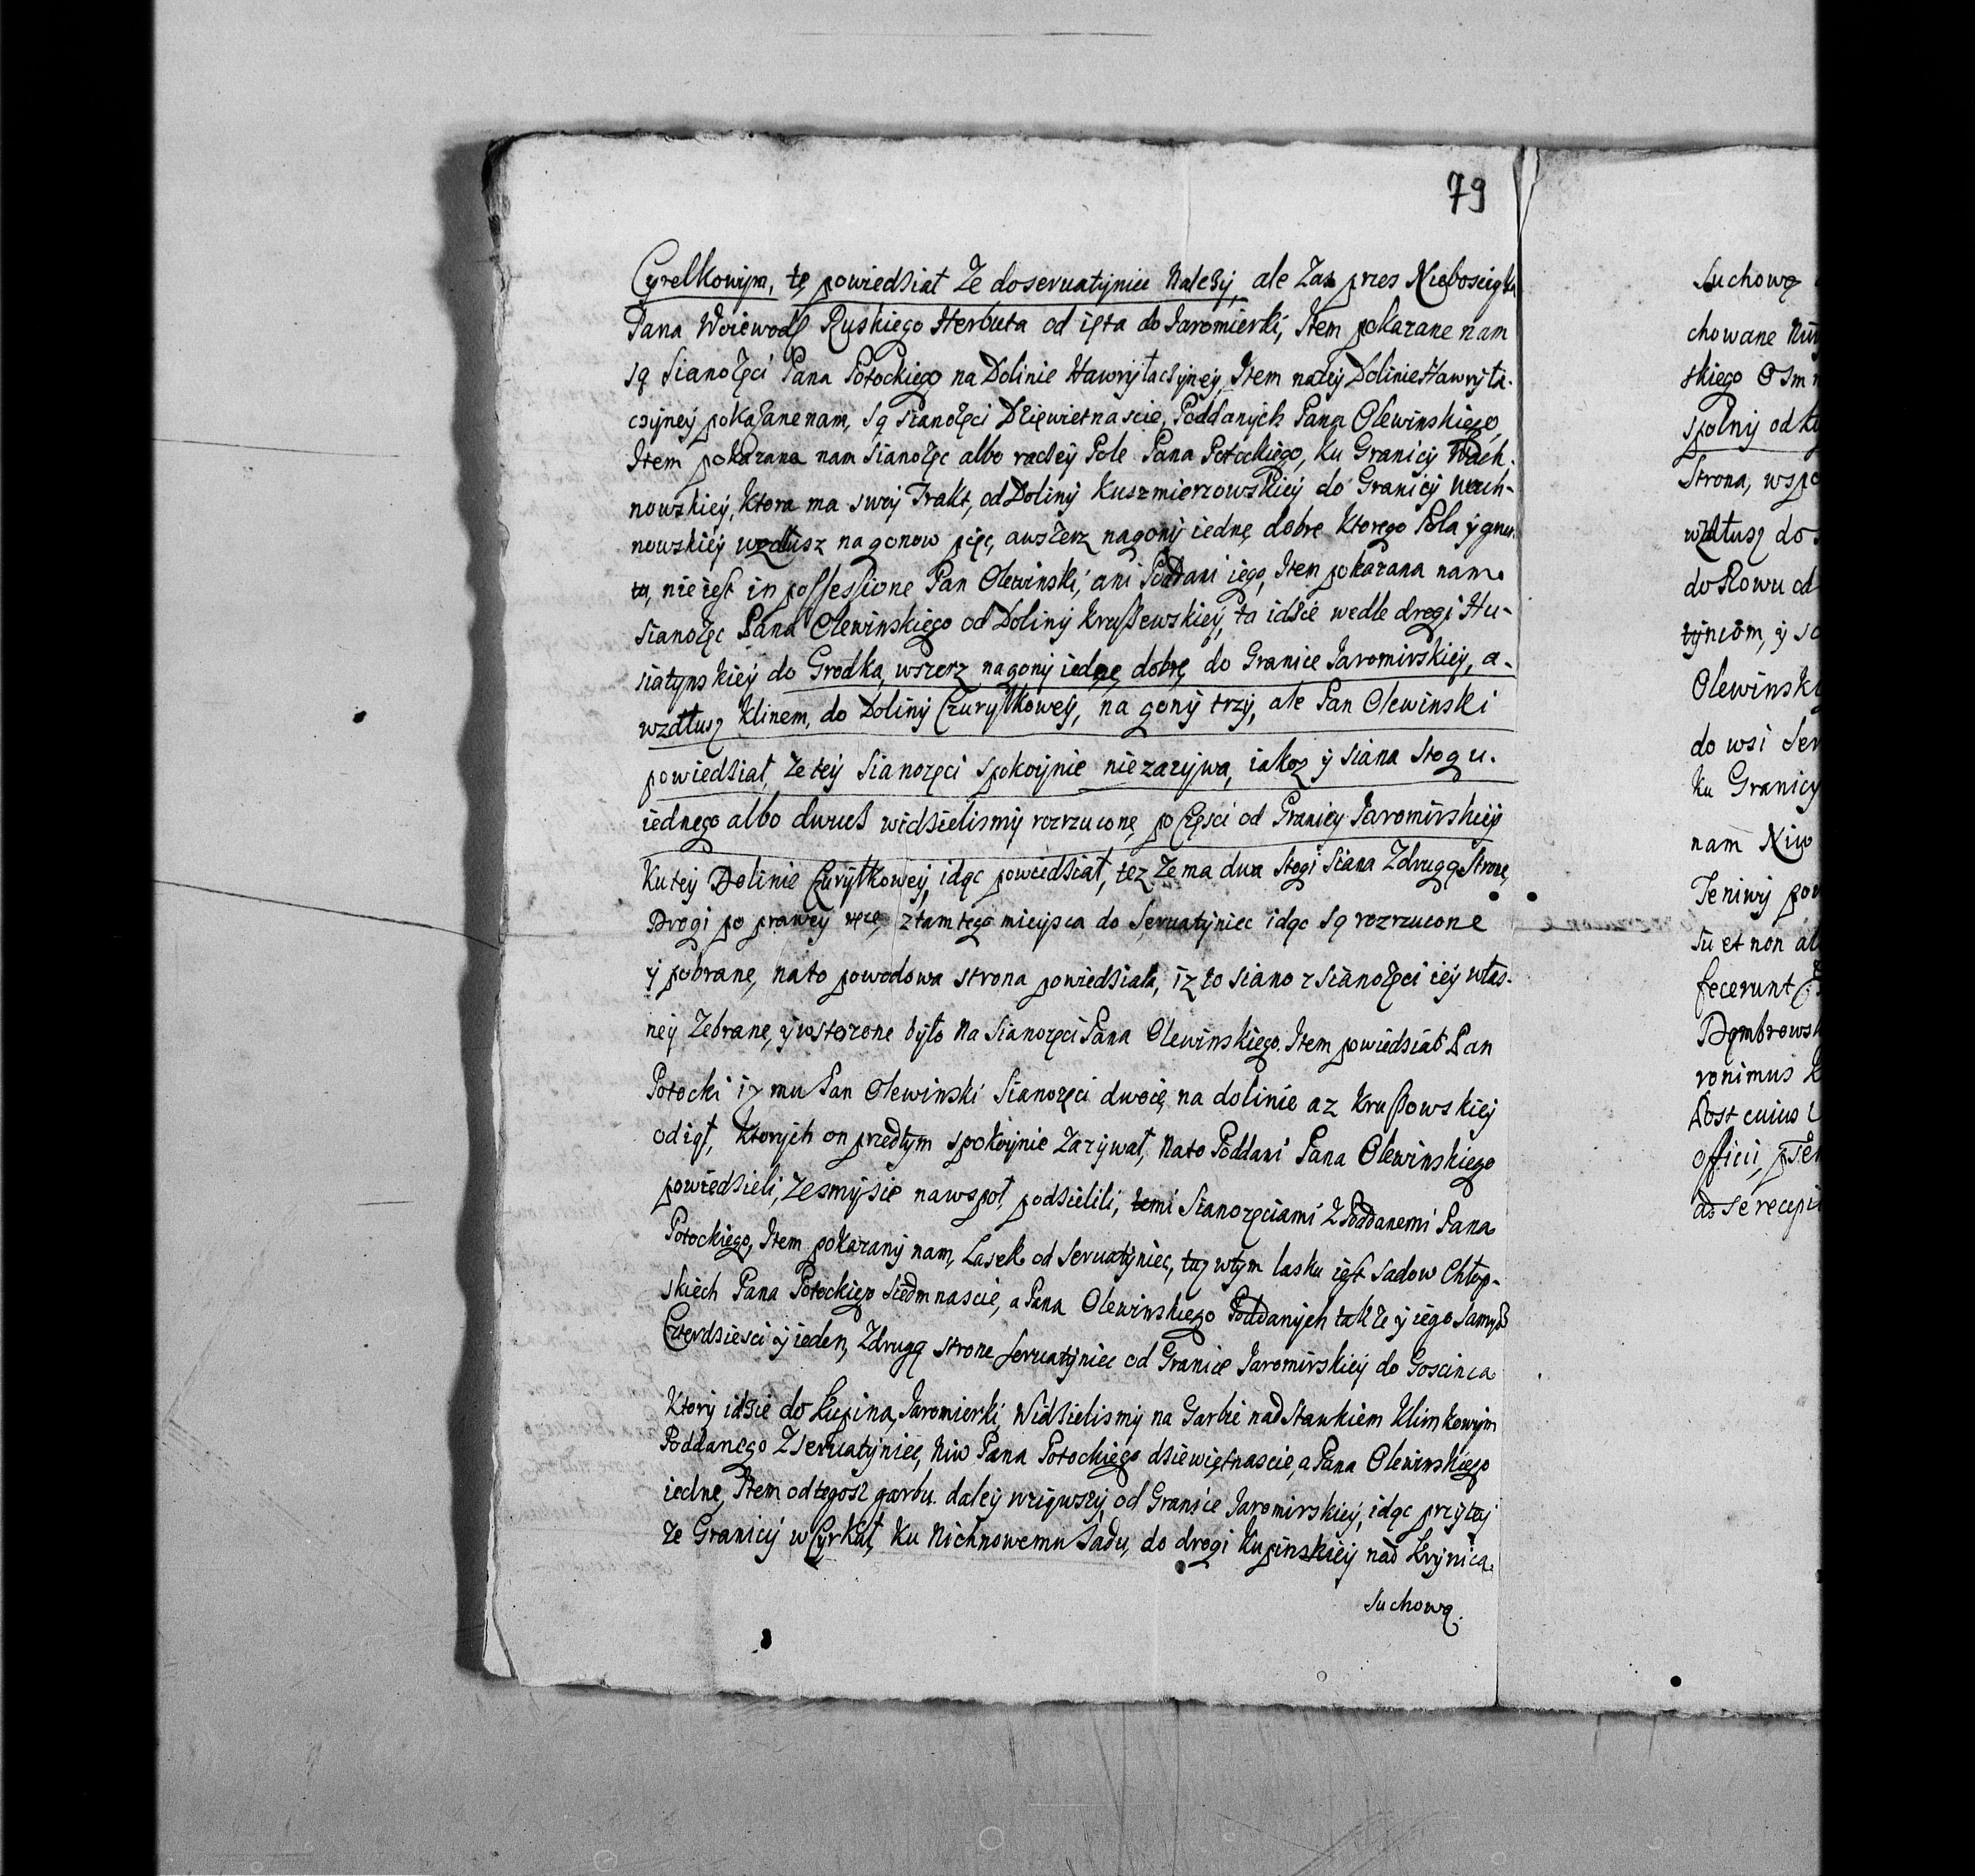 79
Cyrelkowym, tę powiedział Ze doserwatyniec Należy, ale Zas przes Nieboscizka
Pana Woiewodę Ruskiego Herbuta od ięta do Jaromierki, Item pokazane nam
są Sianożęci Pana Potockiego na Dolinie Hawryłaczyney, Item natey Dolinie Hawryła-
czyney pokazane nam, są sianożęci Dziewietnascie, Poddanych Pana Olewinskiego,
Item pokazana nam Sianożęc albo raczey Pole Pana Potockiego, ku Granicy Wach-
nowskiey, ktora ma swoy Trakt, od Doliny Kuszmierzowskiey do Granicy Wach-
nowskiey wzdłusz na gonow pięc, awszerz nagony iednę dobre ktorego Pola y grun-
tu, nie iest in possessione Pan Olewinski, ani Poddani iego, Item pokazana nam
Sianożęc Pana Olewinskiego od Doliny Kruszewskiey, ta idzie wedle drogi Hu-
siatynskiey do Grodka, wszerz nagony iednę dobrę do Granice Jaromirskiey, a-
wzdłusz Klinem, do Doliny Czuryłkowey, na gony trzy, ale Pan Olewinski
powiedział, Ze tey Sianożęci spokoynie niezazywa, iakoz y siana Stogu
iednego albo dwuch widzielismy rozrzucone, po części od Granicy Jaromirskiey
Ku tey Dolinie Czuryłkowey, idąc powiedział, tez Ze ma dwa Stogi Siana Zdrugą Strone,
Drogi po prawey ręce, ztamtego mieysca do Serwatyniec idąc Są rozrzucone
y pobrane, na to powodowa strona powiedziała, iz to siano z sianożęci iey włas-
ney Zebrane, y wstozone było na Sianozęci Pana Olewinskiego. Item powiedział Pan
Potocki iz mu Pan Olewinski Sianozęci dwoie na dolinie az Kruszowskiey
odiął, ktorych on przedtym spokoynie Zazywał, Nato Poddani Pana Olewinskiego
powiedzieli, Zesmy sie nawspoł podzielili, temi Sianozęciami Z Poddanemi Pana
Potockiego, Item pokazany nam, Lasek od Serwatyniec, tuz wtym lasku iest Sadow Chłop-
skiech Pana Potockiego siedmnascie, a Pana Olewinskiego Poddanych takze y iego samych
Czterdziesci y ieden, Zdrugą strone Serwatyniec od Granice Jaromirskiey do Goscinca
Ktory idzie do Kupina, Jaromierki, Widzielismy na Garbie nad Stawkiem Klimkowym
Poddanego Z Serwatyniec, Niw Pana Potockiego dziewiętnascie, a Pana Olewinskiego
iednę, Item od tegosz garbu daley wziąwszy, od Granice Jaromirskiey, idąc przy tey
Ze Granicy w Cyrkał, Ku Nichnowemu Sadu, do drogi Kupinskiey nad Krynica
Suchową.
Suchową
chowane
skiego Osm
spolny od
Strona,
wzdłusz do
do Rowu od
tyncom, y
Olewinsk
do wsi Ser
ku Granicy
nam Niw
Te niwy
su et non
fecerunt
Dąmbrowsk
ronimus
Post cuius
officii,
ad se recepi